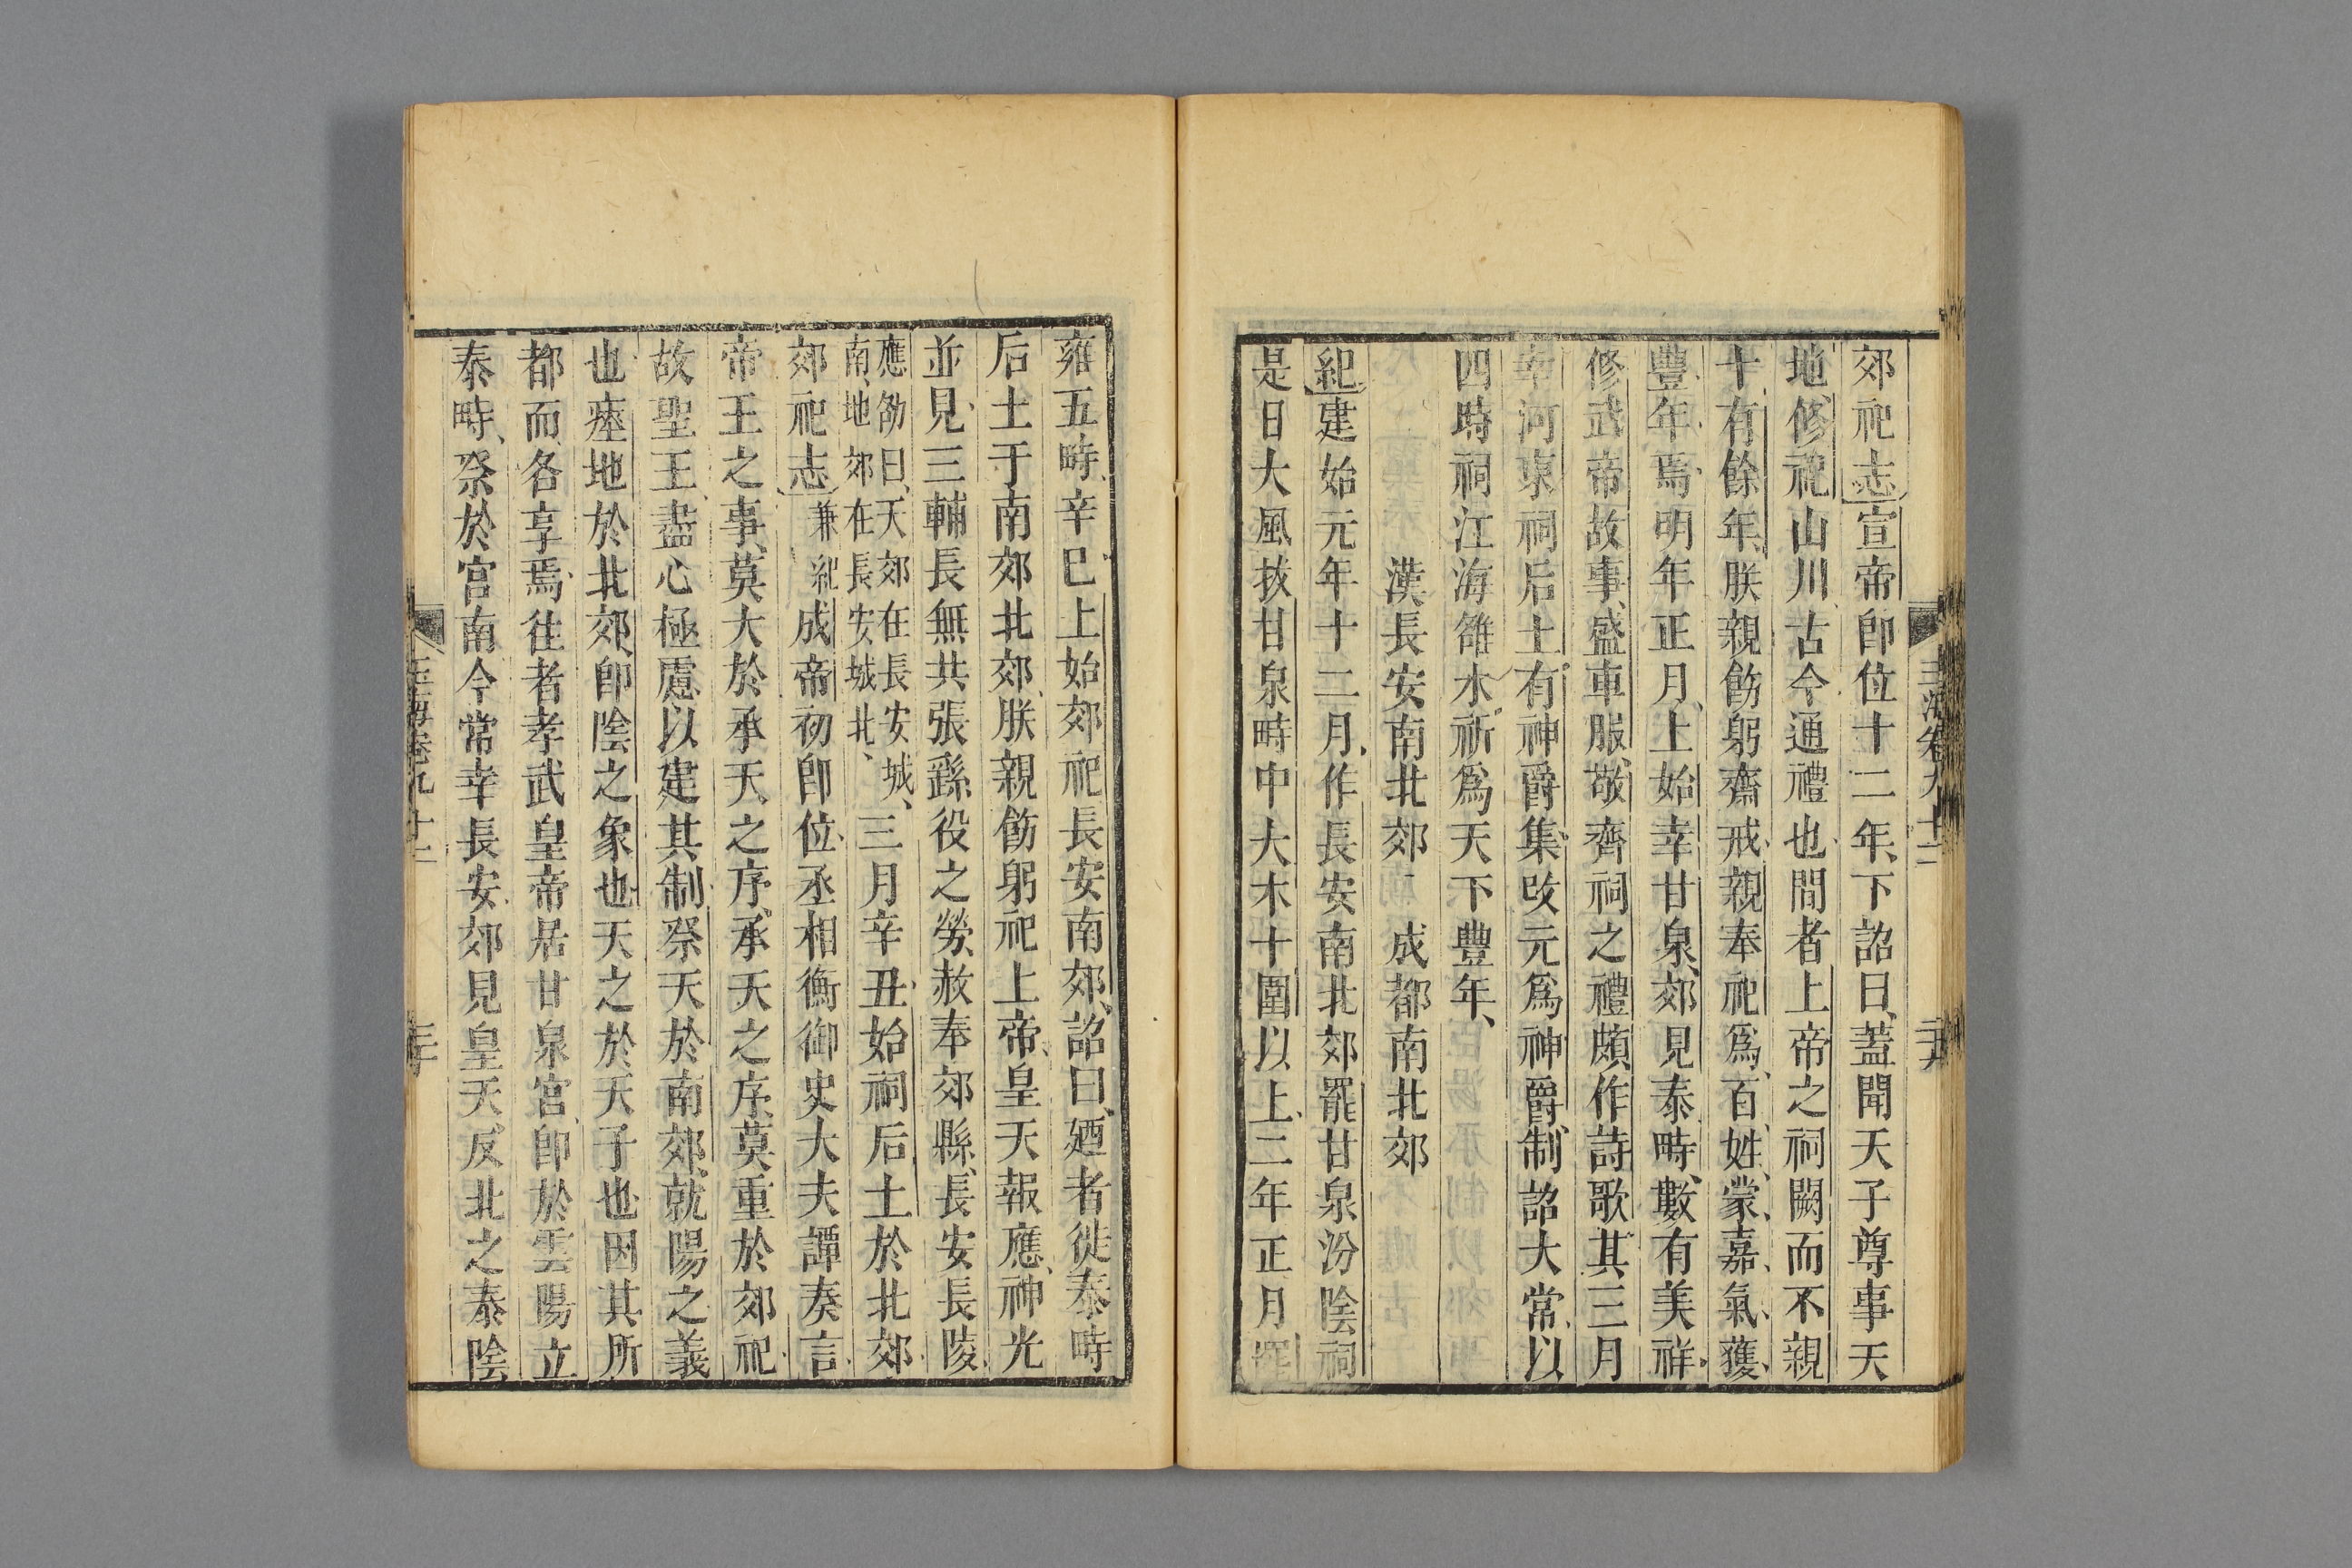 郊祀志宣帝卽位十二年、下詔曰、蓋聞天子尊事天
地、修祀山川、古今通禮也、間者上帝之祠闕而不親
十有餘年、朕親飭躬齋戒、親奉祀爲、百、姓、蒙、嘉、氣、獲、
豐年焉、明年正月、上始幸甘泉、郊見泰畤、數有美祥、
修武帝故事、盛車服、敬齊祠之禮、頗作詩歌、其三月
幸河東祠后土、有神爵集、改元爲神爵、制詔太常、以
四時祠江海雒水、祈爲天下豐年、
漢長安南北郊 成都南北郊
紀建始元年十二月、作長安南北郊罷甘泉汾陰祠
是日大風拔甘泉畤中大木十圍以上、二年正月罷
玉海卷九十二
雍五畤、辛巳、上始郊祀長安南郊、詔曰、廼者徙泰畤
后土于南郊北郊、朕親飭躬祀上帝、皇天報應、神光
並見、三輔長無共張繇役之勞、赦奉郊縣、長安長陵、
應劭曰、天郊在長安城、
南、地郊在長安城北、
三月辛丑、始祠后土於北郊、
郊祀志兼紀成帝初卽位、丞相衡御史大夫譚奏言、
帝王之事、莫大於承天之序、承天之序、莫重於郊祀、
故聖王盡心極慮以建其制、祭天於南郊、就陽之義
也、瘞地於北郊、卽陰之象也、天之於天子也因其所
都而各享焉、往者孝武皇帝居甘泉宮、卽於雲陽立
泰畤、祭於宮南、今常幸長安、郊見皇天、反北之泰陰